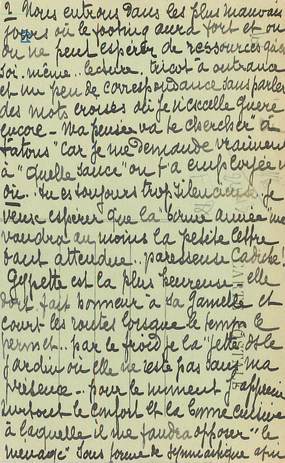 2 Nous entrons dans les plus mauvais
jours où le footing aura tort et où
on ne peut espérer de ressources qu'en
soi-même.. lecture, tricot à outrance
et un peu de correspondance sans parler
des mots croisés où je n'excelle guère
encore - Ma pensée va te chercher "à
tatons" car je me demande vraiment
à "quelle sauce" on t'a employée
où. Tu es toujours trop silencieuse. Je
veux espérer que la bonne année me
vaudra au moins la petite lettre
tant attendue.. paresseuse
Gypette est la plus heureuse elle
doit fait honneur à sa gamelle et
court les routes lorsque le temps le
permet.. par le froid je la "jette" ds le
jardin où elle ne reste pas sans ma
présence - pour le moment j'apprécie
surtout le confort et la bonne
à laquelle il me faudra opposer "le
ménage" sous forme de gymnastique afin